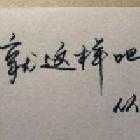 就这样吧
从